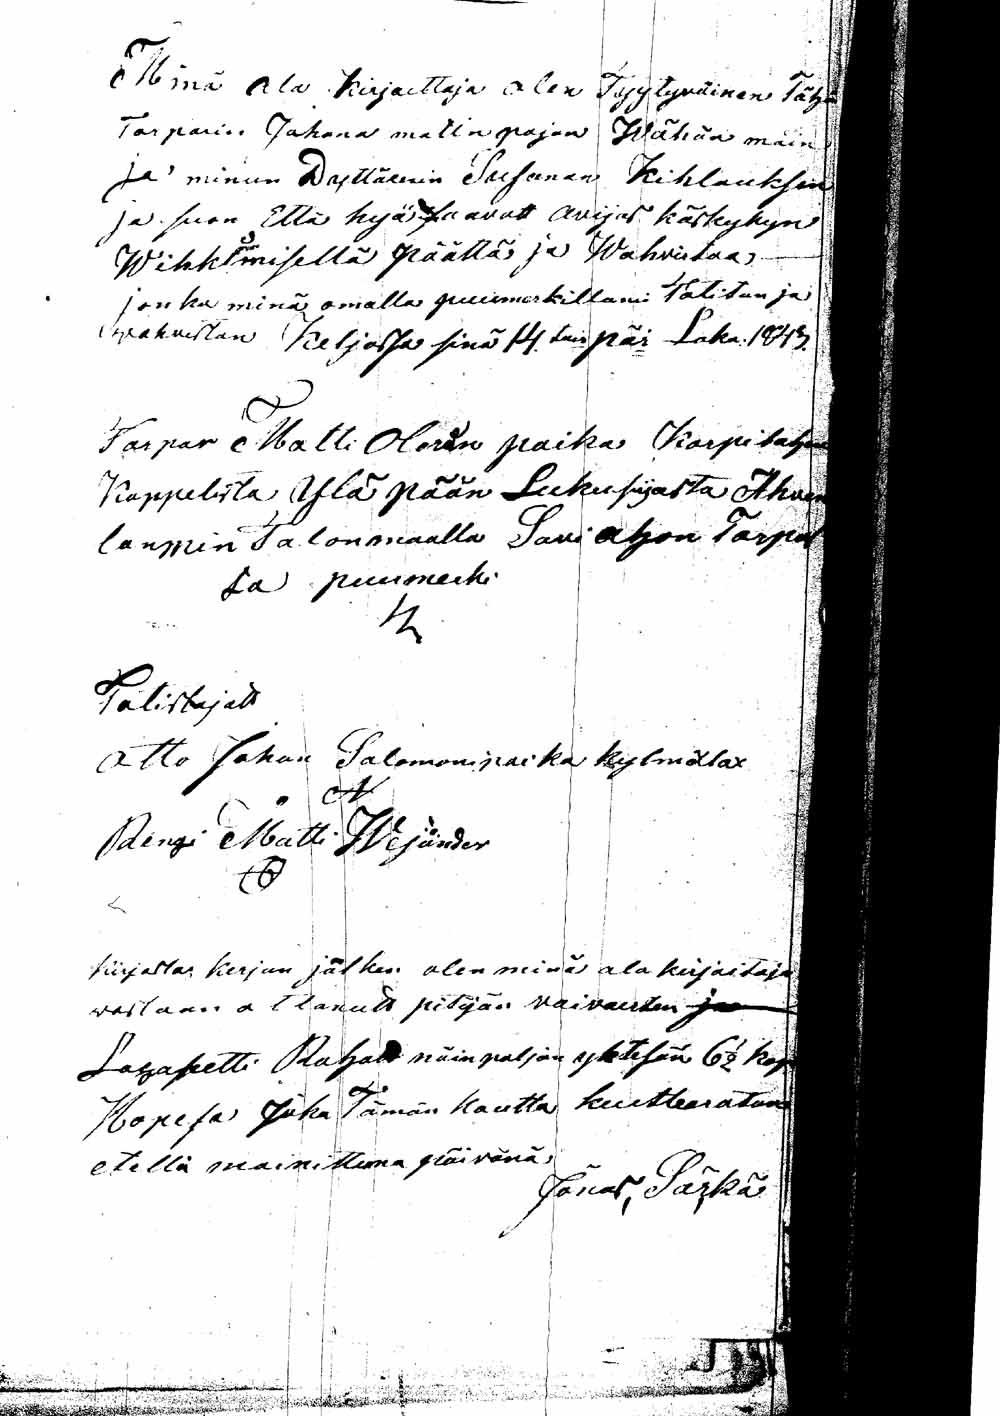 Minä ala Kirjoittaja olen Tyytyväinen Tähän
Torparin Johana matin pojan Wähän mäin
ja minun Dyttäreni Susanan Kihlauksen
ja suon Että hyä saavat avijos käskykyn
Wihkimisellä päättä ja Wahvistaa
jonka minä omalla puumerkilläni Totitan ja
wahvistan Keljossa sinä 14 ta päi Loka. 1843.
Torpar Matti Olerin poika Karpilahen
Kappelista Ylä pään Lukusijasta Ahven
lammin Talonmaalla Savi ahon Torpas
ta puumerki
Totistajatt
Otto Johan Salomoninpoika kylmälax
Rengi Matti Wejander
Kirjastaz kerjan jälken olen minä ala kirjoitaja
vastaan ottanutt pitäjän vaivasten ja
Lazaretti Rahatt näin paljon yhtehän 6½ kop
Hopesa Joka Tämän kautta kuitteeratan
etellä mainittuna päivänä,
Jonas, Särkä